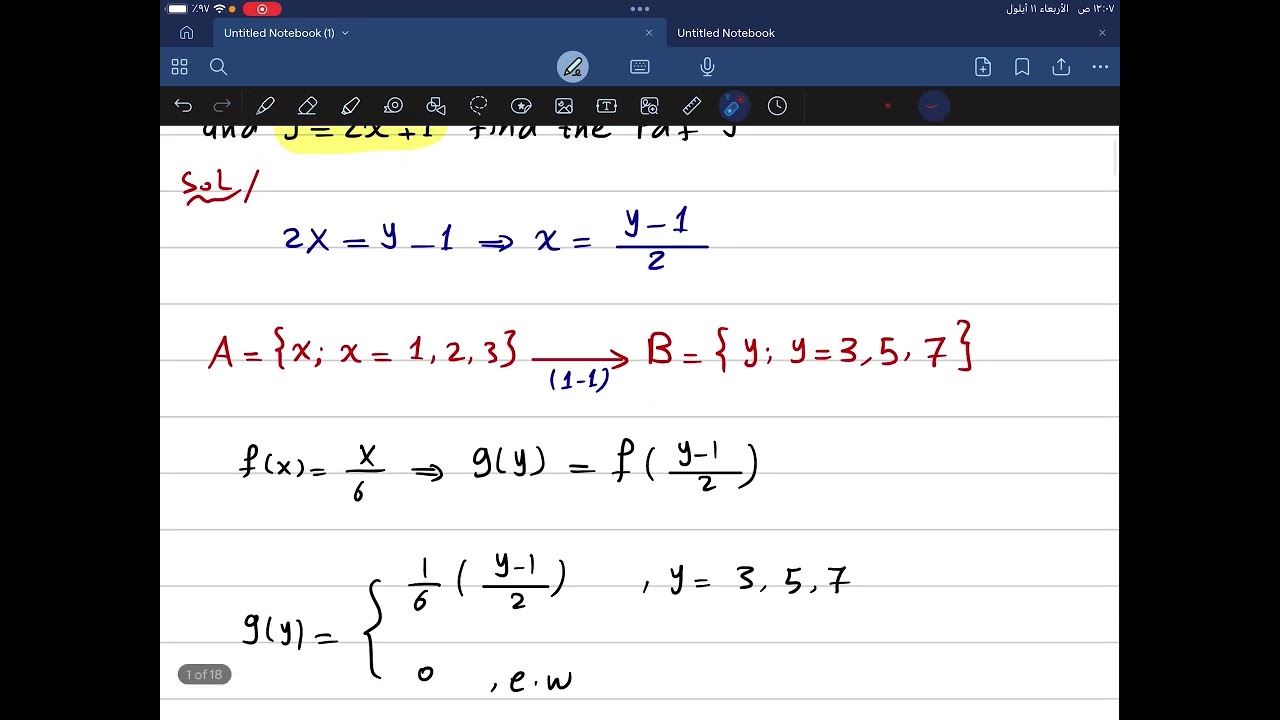 ٪٩٧ ١٢:٠٧ ص الأربعاء ١١ أيلول
Untitled Notebook (1) Untitled Notebook
and y = 2x + 1 find the
SOL /
2X = y - 1 ⇒ x = \frac{y - 1}{2}
A = {x; x = 1, 2, 3} → (1-1) B = {y; y = 3, 5, 7}
f(x) = \frac{x}{6} ⇒ g(y) = f(\frac{y-1}{2})
g(y) = { \frac{1}{6} (\frac{y-1}{2}) , y = 3, 5, 7
0 , e.w
1 of 18